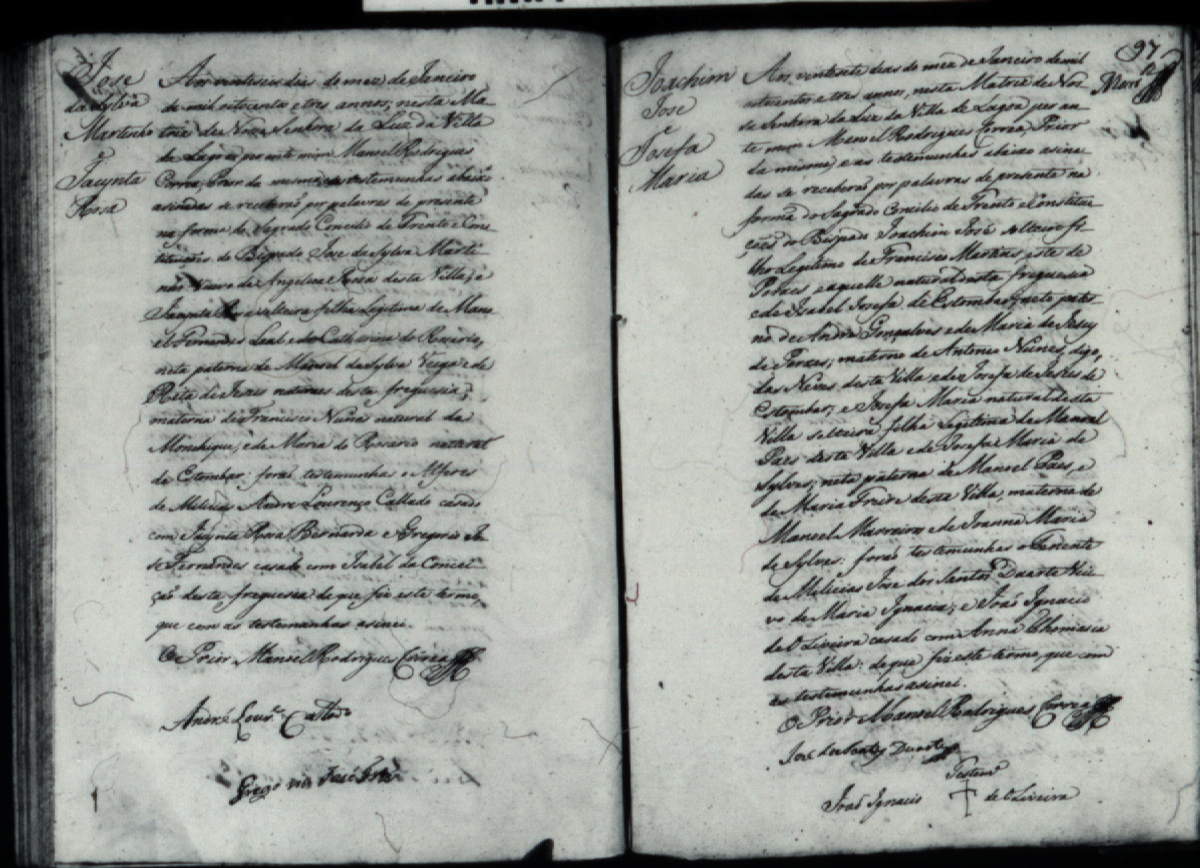 Jose
da Sylva
Martinho
e
Jacynta
Rosa
Aos vinte seis dias do mez de Janeiro
de mil oitocentos e tres annos, nesta Ma-
triz de Nossa Senhora da Luz da Villa
de Lagoa perante mim Manoel Rodrigues
Correa, Prior da mesma, e as testemunhas abaixo
asinadas se receberaõ por palavras de presente
na forma do Sagrado Concilio de Trento e Cons-
tituiçoẽs do Bispado Jose da Sylva Marti-
nho Viuvo de Angelica Rosa desta Villa, e
Jacynta Rosa solteira filha Legitima de Mano-
el Fernandes Leal e de Catharina do Rosario,
neta paterna de Manoel da Sylva Veiga e de
Rita de Jesus naturaes desta freguesia;
materna de Francisco Nunes natural de
Monchique, e de Maria do Rosario natural
de Estombar; foraõ testemunhas o Alferes
de Milicias Andre Lourenço Callado casado
com Jacynta Rosa Bernarda e Gregorio Jo-
se Fernandes casado com Isabel da Concei-
çaõ desta freguesia de que fiz este termo,
que com as testemunhas asinei.
O Prior Manoel Rodrigues Correa
André Lour.ço Callado
Gregorio José Frz
97
Joachim
Jose
e
Josefa
Maria
Aos vinte sete dias do mez de Janeiro de mil
oitocentos e tres annos, nesta Matriz de Nos-
sa Senhora da Luz da Villa de Lagoa, peran-
te mim Manoel Rodrigues Correa, Prior
da mesma, e as testemunhas abaixo asina-
das se receberaõ por palavras de presente na
forma do Sagrado Concilio de Trento e Constitui-
çoẽs do Bispado Joachim José solteiro fi-
lho Legitimo de Francisco Martins, este de
Poraes e aquelle natural desta freguesia
e de Isabel Josefa de Estombar, neto pater-
no de Andre Gonçalves e de Maria de Jesus
de Poraes; materno de Antonio Nunes, digo,
das Neves desta Villa e de Josefa de Jesus de
Estombar; e Josefa Maria natural desta
Villa solteira filha Legitima de Manoel
Paes desta Villa e de Josefa Maria de
Sylves, neta paterna de Manoel Paes, e
de Maria Freire desta Villa, materna de
Manoel Marreiros e de Joanna Maria
de Sylves; foraõ testemunhas o Tenente
de Milicias Jose dos Santos Duarte Viu-
vo de Maria Ignacia, e Joaõ Ignacio
de Oliveira casado com Anna Thomasia
desta Villa: de que fiz este termo, que com
as testemunhas asinei.
O Prior Manoel Rodrigues Correa
Joze dos Santos Duarte
Joaõ Ignacio de Oliveira